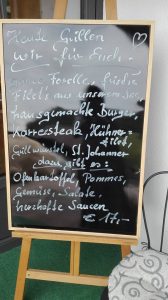 Heute Grillen
wir für Euch.
Forelle,
Filet's aus unserem See
hausgemachte Burger,
Karreesteak, Hühner-
filet,
Grillwürstel, St. Johanner
dazu gibt es:
Ofenkartoffel, Pommes,
Gemüse, Salate
herzhafte Saucen
€ 17,-